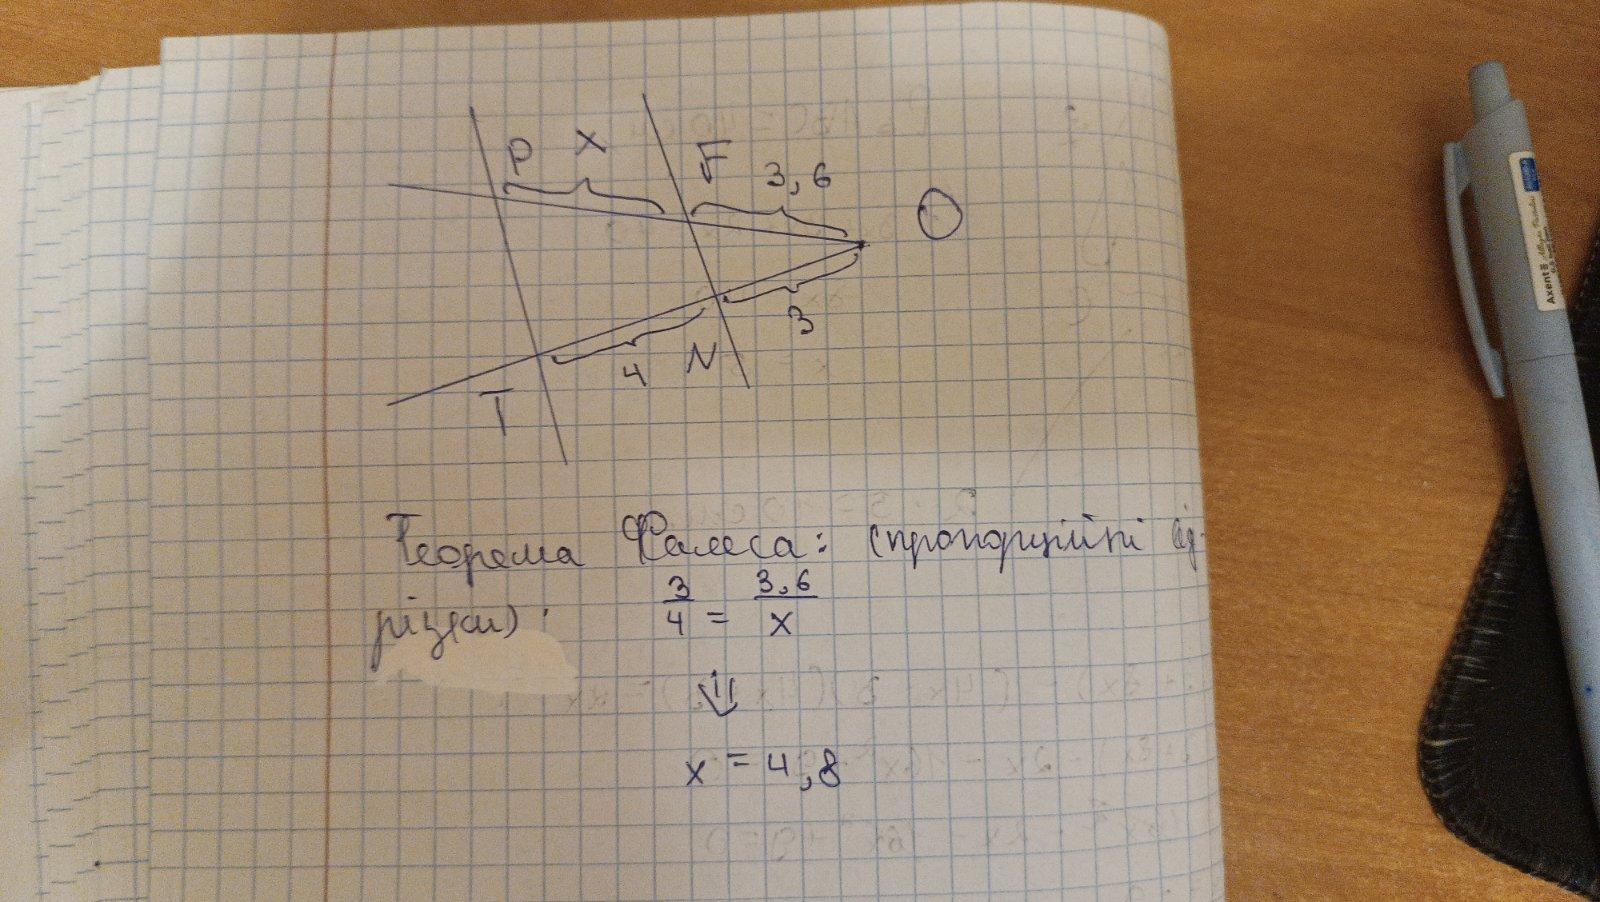 P X F 3,6 O
3
4 N
T
Теорема Фалеса: (пропорційні від-
різки):
3/4 = 3,6/x
⇓
x = 4,8
Axent